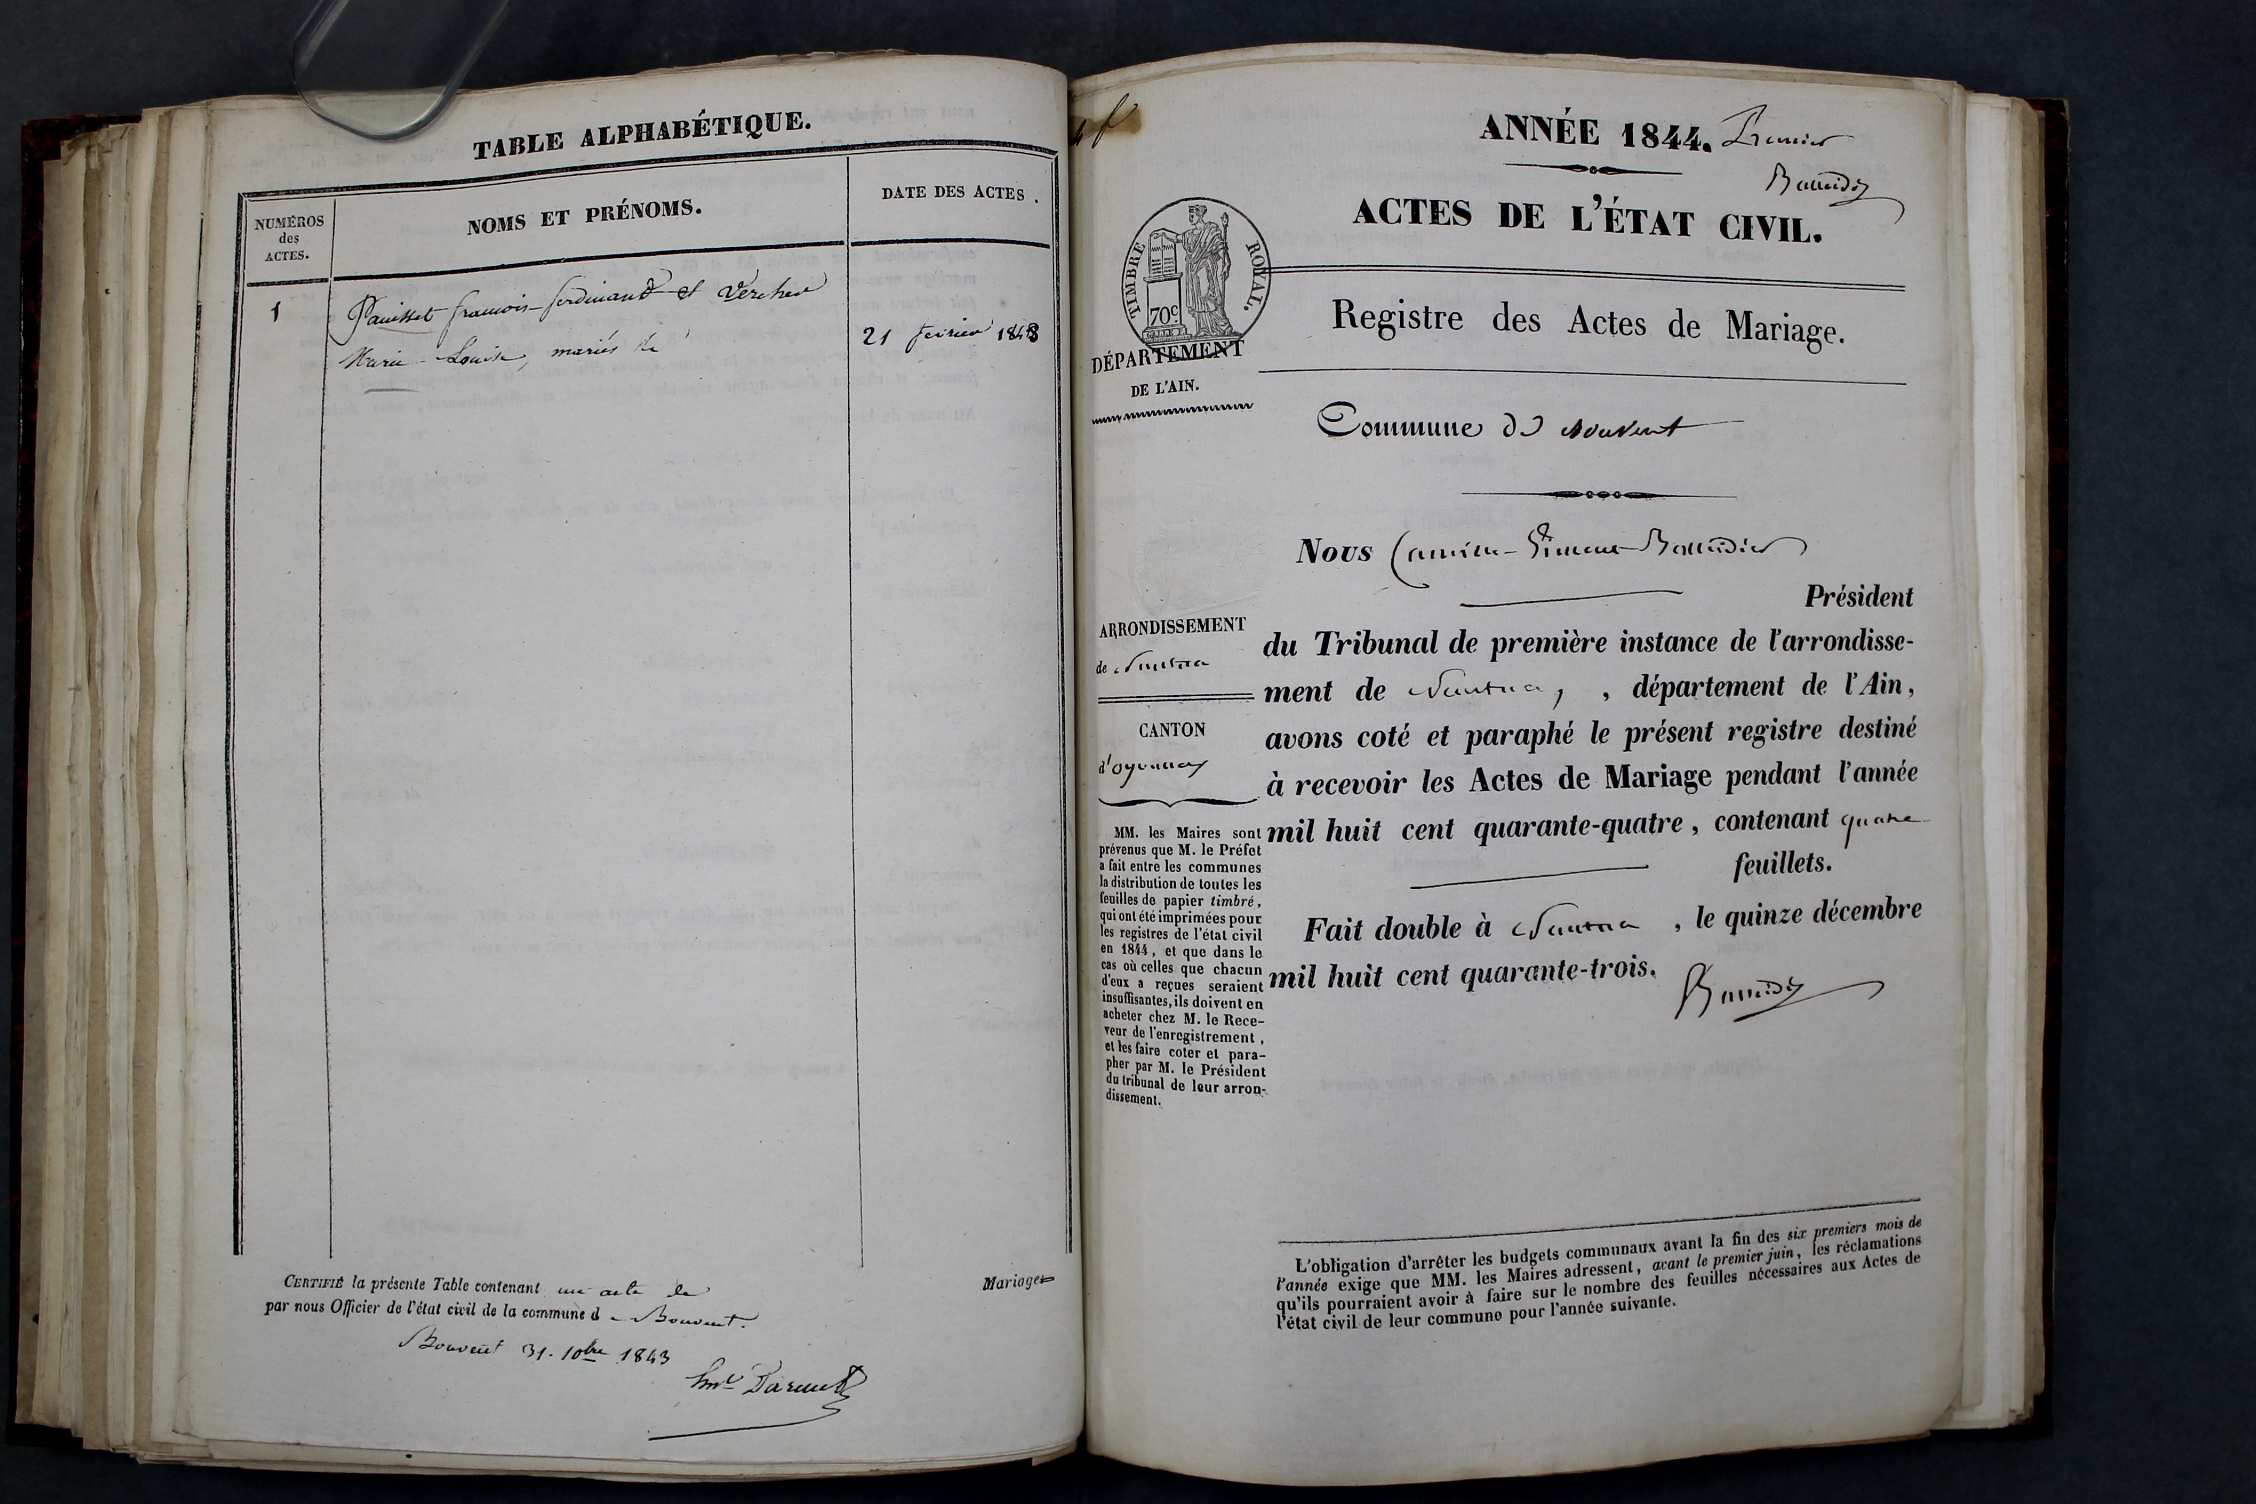 TABLE ALPHABÉTIQUE.
NUMÉROS
des
ACTES.
NOMS ET PRÉNOMS.
DATE DES ACTES.
1
françois-ferdinand et Vercher
Marie-Louise, mariés le
21 février 1843
CERTIFIÉ la présente Table contenant un acte de Mariages
par nous Officier de l'état civil de la commune de Bouvent.
Bouvent 31. 10bre 1843
ANNÉE 1844. Premier
ACTES DE L'ÉTAT CIVIL.
TIMBRE ROYAL.
70c
DÉPARTEMENT
DE L'AIN.
Registre des Actes de Mariage.
Commune de Bouvent
ARRONDISSEMENT
de Nantua
CANTON
d'oyonnax
MM. les Maires sont
prévenus que M. le Préfet
a fait entre les communes
la distribution de toutes les
feuilles de papier timbré,
qui ont été imprimées pour
les registres de l'état civil
en 1844, et que dans le
cas où celles que chacun
d'eux a reçues seraient
insuffisantes, ils doivent en
acheter chez M. le Rece-
veur de l'enregistrement,
et les faire coter et para-
pher par M. le Président
du tribunal de leur arron-
dissement.
Nous
Président
du Tribunal de première instance de l'arrondisse-
ment de Nantua, , département de l'Ain,
avons coté et paraphé le présent registre destiné
à recevoir les Actes de Mariage pendant l'année
mil huit cent quarante-quatre, contenant quatre
feuillets.
Fait double à Nantua , le quinze décembre
mil huit cent quarante-trois.
L'obligation d'arrêter les budgets communaux avant la fin des six premiers mois de
l'année exige que MM. les Maires adressent, avant le premier juin, les réclamations
qu'ils pourraient avoir à faire sur le nombre des feuilles nécessaires aux Actes de
l'état civil de leur commune pour l'année suivante.